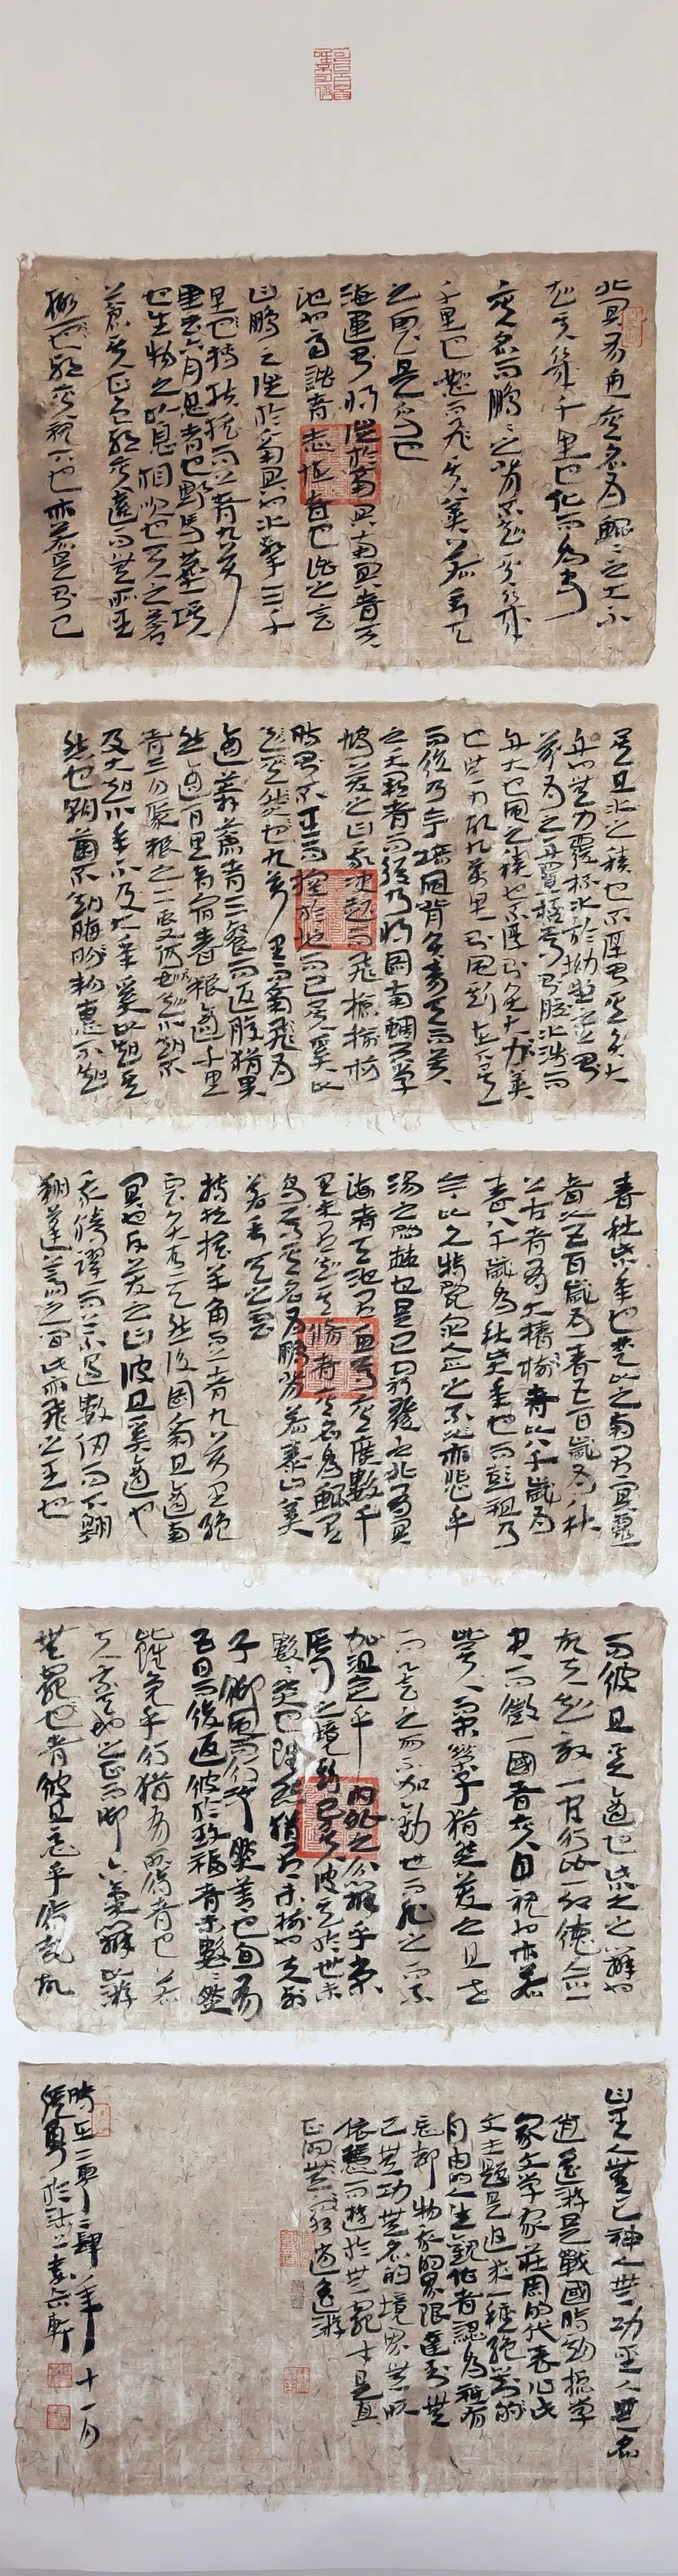 北冥有魚其名為鯤鯤之大不
知其幾千里也化而為鳥
其名而鵬鵬之背不知其幾
千里也怒而飛其翼若垂天
之雲是鳥也
海運則將徙於南冥南冥者天
池也齊諧者志怪者也諧之言
曰鵬之徙於南冥也水擊三千
里也摶扶搖而上者九萬
里去六月息者也野馬塵埃
也生物之以息相吹也天之蒼
蒼其正色邪其遠而無所至
極邪也其視下也亦若是則已
矣且水之積也不厚則其負大
舟也無力覆杯水於坳堂之上則
芥為之舟置杯焉則膠水淺而
舟大也風之積也不厚則負大翼
也無力故九萬里則風斯在下矣
而後乃今培風背負青天而莫
之夭閼者而後乃將圖南蜩與學
鳩笑之曰我決起而飛搶榆枋
時則不至而控於地而已矣奚以
適莽蒼者三餐而返腹猶果
然適百里者宿舂糧適千里
者三月聚糧之二蟲又何知小知不
及大知小年不及大年奚以知其
然也朝菌不知晦朔蟪蛄不知
春秋此小年也楚之南有冥靈
者以五百歲為春五百歲為秋
上古者有大椿者以八千歲為
春八千歲為秋此大年也而彭祖乃
今以久特聞眾人匹之不亦悲乎
湯之問棘也是已窮髮之北有冥
海者天池也有魚焉其廣數千
里未有知其修者其名為鯤有
鳥焉其名為鵬背若泰山翼
若垂天之雲
摶扶搖羊角而上者九萬里絕
雲氣負青天然後圖南且適南
冥也斥鴳笑之曰彼且奚適也
我騰躍而上不過數仞而下翱
翔蓬蒿之間此亦飛之至也
而彼且奚適也此小大之辯也
故夫知效一官行比一鄉德合一
君而徵一國者其自視也亦若
此矣而宋榮子猶然笑之且
舉世而譽之而不加勸舉世而非之而不
加沮定乎內外之分辯乎榮
辱之境斯已矣彼其於世未
數數然也雖然猶有未樹也夫列
子御風而行泠然善也旬有
五日而後返彼於致福者未數數然
雖免乎行猶有所待者也若
夫乘天地之正而御六氣之辯以遊
無窮也者彼且惡乎待哉故
曰至人無己神人無功聖人無名
逍遙游是戰國時期哲學
家文學家莊周的代表作此
文主題是追求一種絕對的
自由的人生觀作者認為祇有
忘卻物我的界限達到無
己無功無名的境界無所
依憑而遊於無窮才是真
正的逍遙遊
時在二零二肆年十一月